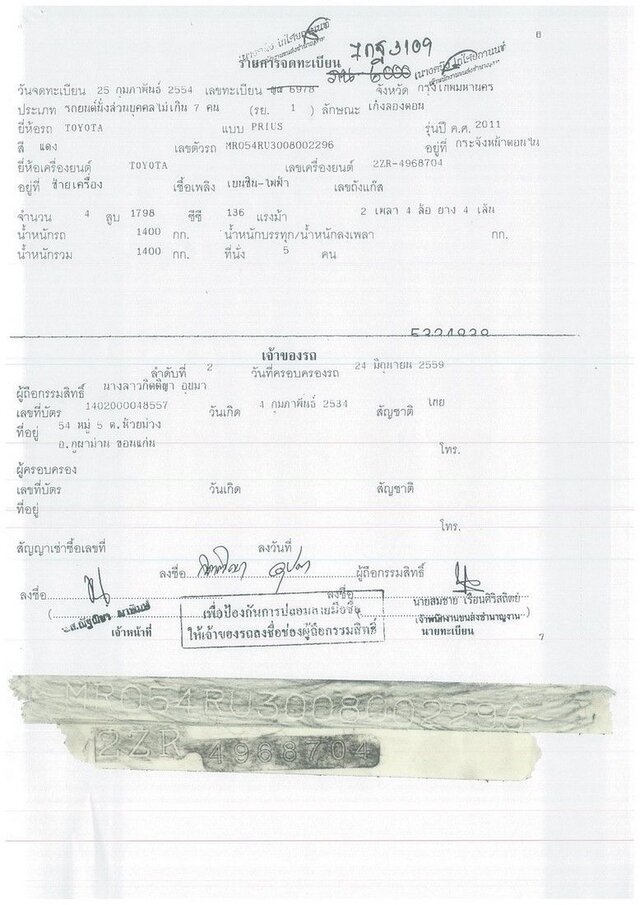 8
รายการจดทะเบียน 7กฐ 3109
วันจดทะเบียน 25 กุมภาพันธ์ 2554 เลขทะเบียน 6978 จังหวัด กรุงเทพมหานคร
ประเภท รถยนต์นั่งส่วนบุคคลไม่เกิน 7 คน (รย. 1) ลักษณะ เก๋งสองตอน
ยี่ห้อรถ TOYOTA แบบ PRIUS รุ่นปี ค.ศ. 2011
สี แดง เลขตัวรถ MR054RU3008002296 อยู่ที่ กระจังหน้าตอนใน
ยี่ห้อเครื่องยนต์ TOYOTA เลขเครื่องยนต์ 2ZR-4968704
อยู่ที่ ซ้ายเครื่อง เชื้อเพลิง เบนซิน-ไฟฟ้า เลขถังแก๊ส
จำนวน 4 สูบ 1798 ซีซี 136 แรงม้า 2 เพลา 4 ล้อ ยาง 4 เส้น
น้ำหนักรถ 1400 กก. น้ำหนักบรรทุก/น้ำหนักลงเพลา กก.
น้ำหนักรวม 1400 กก. ที่นั่ง 5 คน
เจ้าของรถ
ลำดับที่ 2 วันที่ครอบครองรถ 24 มิถุนายน 2559
ผู้ถือกรรมสิทธิ์ นางสาวกิตติญา อุปมา
เลขที่บัตร 1402000048557 วันเกิด 4 กุมภาพันธ์ 2534 สัญชาติ ไทย
ที่อยู่ 54 หมู่ 5 ต.ห้วยม่วง
อ.ภูผาม่าน ขอนแก่น
โทร.
ผู้ครอบครอง
เลขที่บัตร วันเกิด สัญชาติ
ที่อยู่
โทร.
สัญญาเช่าซื้อเลขที่ ลงวันที่
ลงชื่อ ผู้ถือกรรมสิทธิ์
ลงชื่อ ลงชื่อ
เพื่อป้องกันการปลอมลายมือชื่อ
ให้เจ้าของรถลงชื่อช่องผู้ถือกรรมสิทธิ์
นายสมชาย เรียนศิริสถิตย์
เจ้าพนักงานขนส่งชำนาญงาน
เจ้าหน้าที่ นายทะเบียน
7
MR054RU3008002296
2ZR 4968704